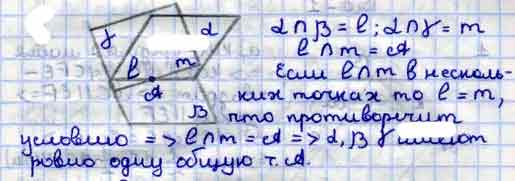 γ α
α∩β = l; α∩γ = m
l m
l∩m = A
A
Если l∩m в несколь-
β
ких точках то l = m,
что противоречит
условию => l∩m = A => α, β γ имеют
ровно одну общую т. A.